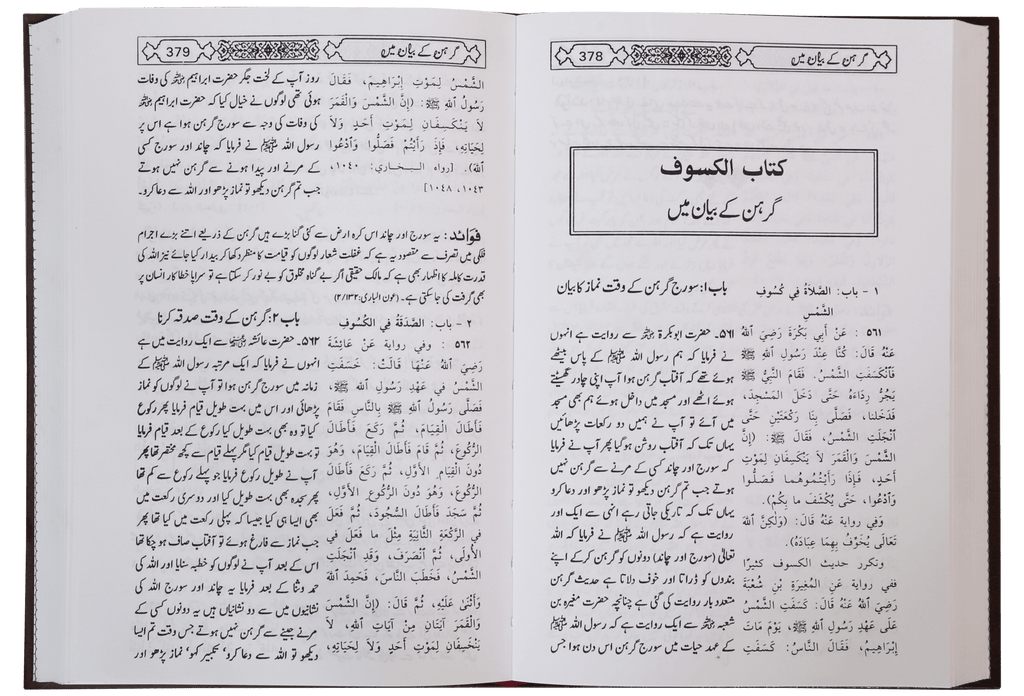 گرہن کے بیان میں
378
كتاب الكسوف
گرہن کے بیان میں
١ - باب: الصَّلاَةُ فِي كُسُوفِ
الشَّمْسِ
٥٦١ : عَنْ أَبِي بَكْرَةَ رَضِيَ اللهُ
عَنْهُ قَالَ: كُنَّا عِنْدَ رَسُولِ اللهِ ﷺ
فَانْكَسَفَتِ الشَّمْسُ. فَقَامَ النَّبِيُّ ﷺ
يَجُرُّ رِدَاءَهُ حَتَّى دَخَلَ المَسْجِدَ،
فَدَخَلْنَا، فَصَلَّى بِنَا رَكْعَتَيْنِ حَتَّى
انْجَلَتِ الشَّمْسُ، فَقَالَ ﷺ: (إِنَّ
الشَّمْسَ وَالْقَمَرَ لاَ يَنْكَسِفَانِ لِمَوْتِ
أَحَدٍ، فَإِذَا رَأَيْتُمُوهُمَا فَصَلُّوا
وَادْعُوا، حَتَّى يُكْشَفَ ما بِكُمْ).
وَفِي رواية عَنْهُ قَالَ: (وَلٰكِنَّ اللهَ
تَعَالَى يُخَوِّفُ بِهِمَا عِبَادَهُ).
وتكرر حديث الكسوف كثيرًا
ففي رواية عَنِ المُغِيرَةِ بْنِ شُعْبَةَ
رَضِيَ اللهُ عَنْهُ قَالَ: كَسَفَتِ الشَّمْسُ
عَلَى عَهْدِ رَسُولِ اللهِ ﷺ، يَوْمَ مَاتَ
إِبْرَاهِيمُ، فَقَالَ النَّاسُ: كَسَفَتِ
باب ۱: سورج گرہن کے وقت نماز کا بیان
۵۶۱۔ حضرت ابوبکرۃ رضی اللہ عنہ سے روایت ہے انہوں
نے فرمایا کہ ہم رسول اللہ ﷺ کے پاس بیٹھے
ہوئے تھے کہ آفتاب گرہن ہوا آپ اپنی چادر گھسیٹتے
ہوئے اٹھے اور مسجد میں داخل ہوئے ہم بھی مسجد
میں آئے تو آپ نے ہمیں دو رکعات پڑھائیں
یہاں تک کہ آفتاب روشن ہوگیا پھر آپ نے فرمایا
کہ سورج اور چاند کسی کے مرنے سے گرہن نہیں
ہوتے جب تم گرہن دیکھو تو نماز پڑھو اور دعا کرو
یہاں تک کہ تاریکی جاتی رہے انہی سے ایک اور
روایت ہے کہ رسول اللہ ﷺ نے فرمایا کہ اللہ
تعالیٰ (سورج اور چاند) دونوں کو گرہن کر کے اپنے
بندوں کو ڈراتا اور خوف دلاتا ہے حدیث گرہن
متعدد بار روایت کی گئی ہے چنانچہ حضرت مغیرہ بن
شعبہ رضی اللہ عنہ سے ایک روایت ہے کہ رسول اللہ ﷺ
کے عہد حیات میں سورج گرہن اس دن ہوا جس
گرہن کے بیان میں
379
الشَّمْسُ لِمَوْتِ إِبْرَاهِيمَ، فَقَالَ
رَسُولُ اللهِ ﷺ: (إِنَّ الشَّمْسَ وَالْقَمَرَ
لاَ يَنْكَسِفَانِ لِمَوْتِ أَحَدٍ وَلاَ
لِحَيَاتِهِ، فَإِذَا رَأَيْتُمْ فَصَلُّوا وَادْعُوا
اللهَ). [رواه البخاري: ١٠٤٠،
١٠٤٣، ١٠٤٨]
روز آپ کے لخت جگر حضرت ابراہیم رضی اللہ عنہ کی وفات
ہوئی تھی لوگوں نے خیال کیا کہ حضرت ابراہیم رضی اللہ عنہ
کی وفات کی وجہ سے سورج گرہن ہوا ہے اس پر
رسول اللہ ﷺ نے فرمایا کہ چاند اور سورج کسی
کے مرنے اور پیدا ہونے سے گرہن نہیں ہوتے
جب تم گرہن دیکھو تو نماز پڑھو اور اللہ سے دعا کرو۔
فوائد: یہ سورج اور چاند اس کرہ ارض سے کئی گنا بڑے ہیں گرہن کے ذریعے اتنے بڑے اجرام
فلکی میں تصرف سے مقصود یہ ہے کہ غفلت شعار لوگوں کو قیامت کا منظر دکھا کر بیدار کیا جائے نیز اللہ کی
قدرت کاملہ کا اظہار بھی ہے کہ مالک حقیقی اگر بے گناہ مخلوق کو بے نور کر سکتا ہے تو سراپا خطا کار انسان پر
بھی گرفت کی جا سکتی ہے۔ (عون الباری:۲/۱۳۳)
٢ - باب: الصَّدَقَةُ فِي الكُسُوفِ
٥٦٢ : وفي رواية عَنْ عَائِشَةَ
رَضِيَ اللهُ عَنْهَا قَالَتْ: خَسَفَتِ
الشَّمْسُ في عَهْدِ رَسُولِ اللهِ ﷺ،
فَصَلَّى رَسُولُ اللهِ ﷺ بِالنَّاسِ فَقَامَ
فَأَطَالَ الْقِيَامَ، ثُمَّ رَكَعَ فَأَطَالَ
الرُّكُوعَ، ثُمَّ قَامَ فَأَطَالَ الْقِيَامَ، وَهُوَ
دُونَ الْقِيَامِ الأَوَّلِ، ثُمَّ رَكَعَ فَأَطَالَ
الرُّكُوعَ، وَهُوَ دُونَ الرُّكُوعِ الأَوَّلِ،
ثُمَّ سَجَدَ فَأَطَالَ السُّجُودَ، ثُمَّ فَعَلَ
في الرَّكْعَةِ الثَّانِيَةِ مِثْلَ ما فَعَلَ في
الأُولَى، ثُمَّ انْصَرَفَ، وَقَدِ انْجَلَتِ
الشَّمْسُ، فَخَطَبَ النَّاسَ، فَحَمِدَ اللهَ
وَأَثْنَى عَلَيْهِ، ثُمَّ قَالَ: (إِنَّ الشَّمْسَ
وَالْقَمَرَ آيَتَانِ مِنْ آيَاتِ اللهِ، لاَ
يَنْخَسِفَانِ لِمَوْتِ أَحَدٍ وَلاَ لِحَيَاتِهِ،
باب ۲: گرہن کے وقت صدقہ کرنا
۵۶۲۔ حضرت عائشہ رضی اللہ عنہا سے ایک روایت میں ہے
انہوں نے فرمایا کہ ایک مرتبہ رسول اللہ ﷺ کے
زمانہ میں سورج گرہن ہوا تو آپ نے لوگوں کو نماز
پڑھائی اور اس میں بہت طویل قیام فرمایا پھر رکوع
کیا تو وہ بھی بہت طویل کیا رکوع کے بعد قیام فرمایا
تو بہت طویل قیام کیا مگر پہلے قیام سے کچھ مختصر تھا پھر
آپ نے طویل رکوع فرمایا جو پہلے رکوع سے کم تھا
پھر سجدہ بھی بہت طویل کیا اور دوسری رکعت میں
بھی ایسا ہی کیا جیسا کہ پہلی رکعت میں کیا تھا پھر
جب نماز سے فارغ ہوئے تو آفتاب صاف ہو چکا تھا
اس کے بعد آپ نے لوگوں کو خطبہ سنایا اور اللہ کی
حمد و ثنا کے بعد فرمایا یہ چاند اور سورج اللہ کی
نشانیوں میں سے دو نشانیاں ہیں یہ دونوں کسی کے
مرنے جینے سے گرہن نہیں ہوتے جس وقت تم ایسا
دیکھو تو اللہ سے دعا کرو' تکبیر کہو' نماز پڑھو اور